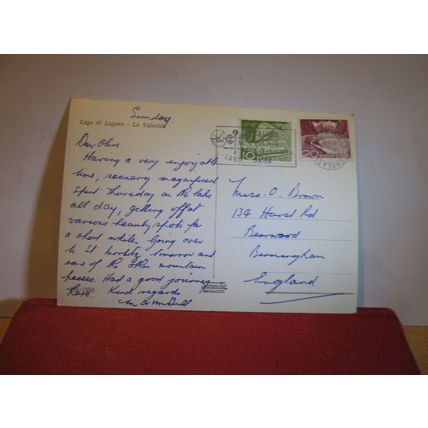 Lago di Lugano - La Valsolda
Sunday
Dear Olive
Having a very enjoyable
time, scenery magnificent
Spent Thursday on the lake
all day, getting off at
various beauty spots for
a short while. Going over
to St. Moritz tomorrow and
some of the other mountain
passes. Had a good journey
here. Kind regards
10
20
O. Brown
134
Rd
Bearwood
Birmingham
England